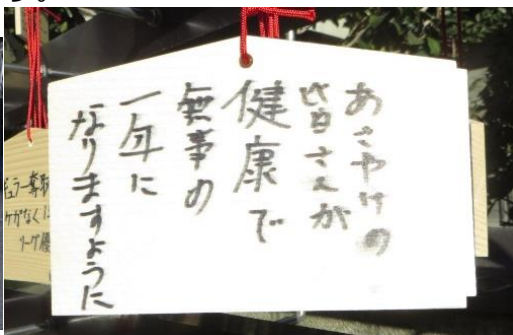 あさやけの
皆さんが
健康で
無事の
一年に
なりますように
ギュラー奪取
ケガなく
リーグ優